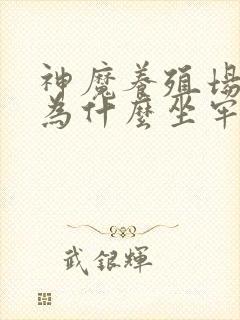 神魔養殖場
為什麼坐牢
武銀輝